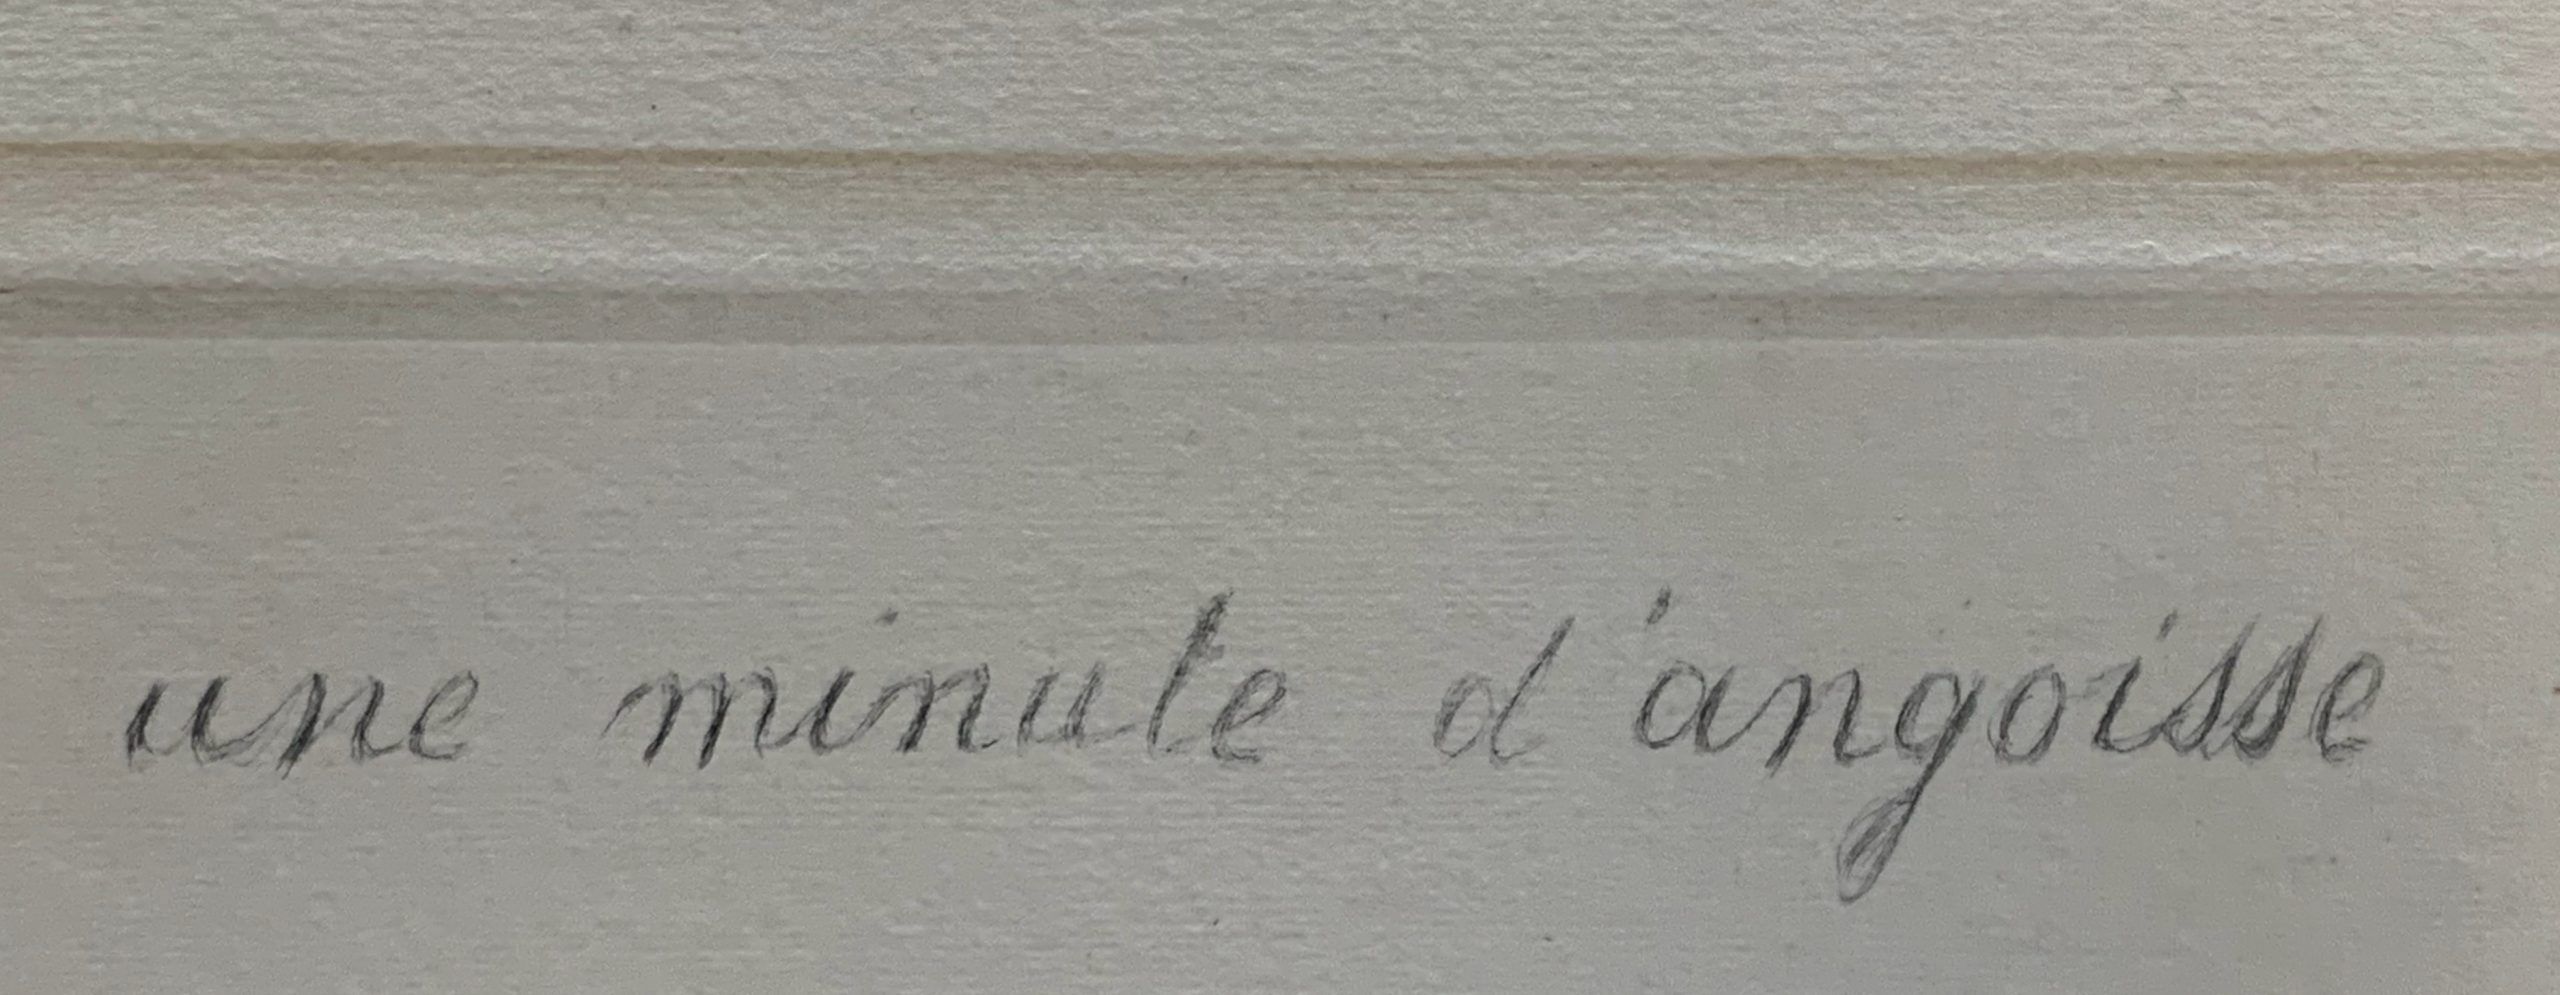 une minute d'angoisse